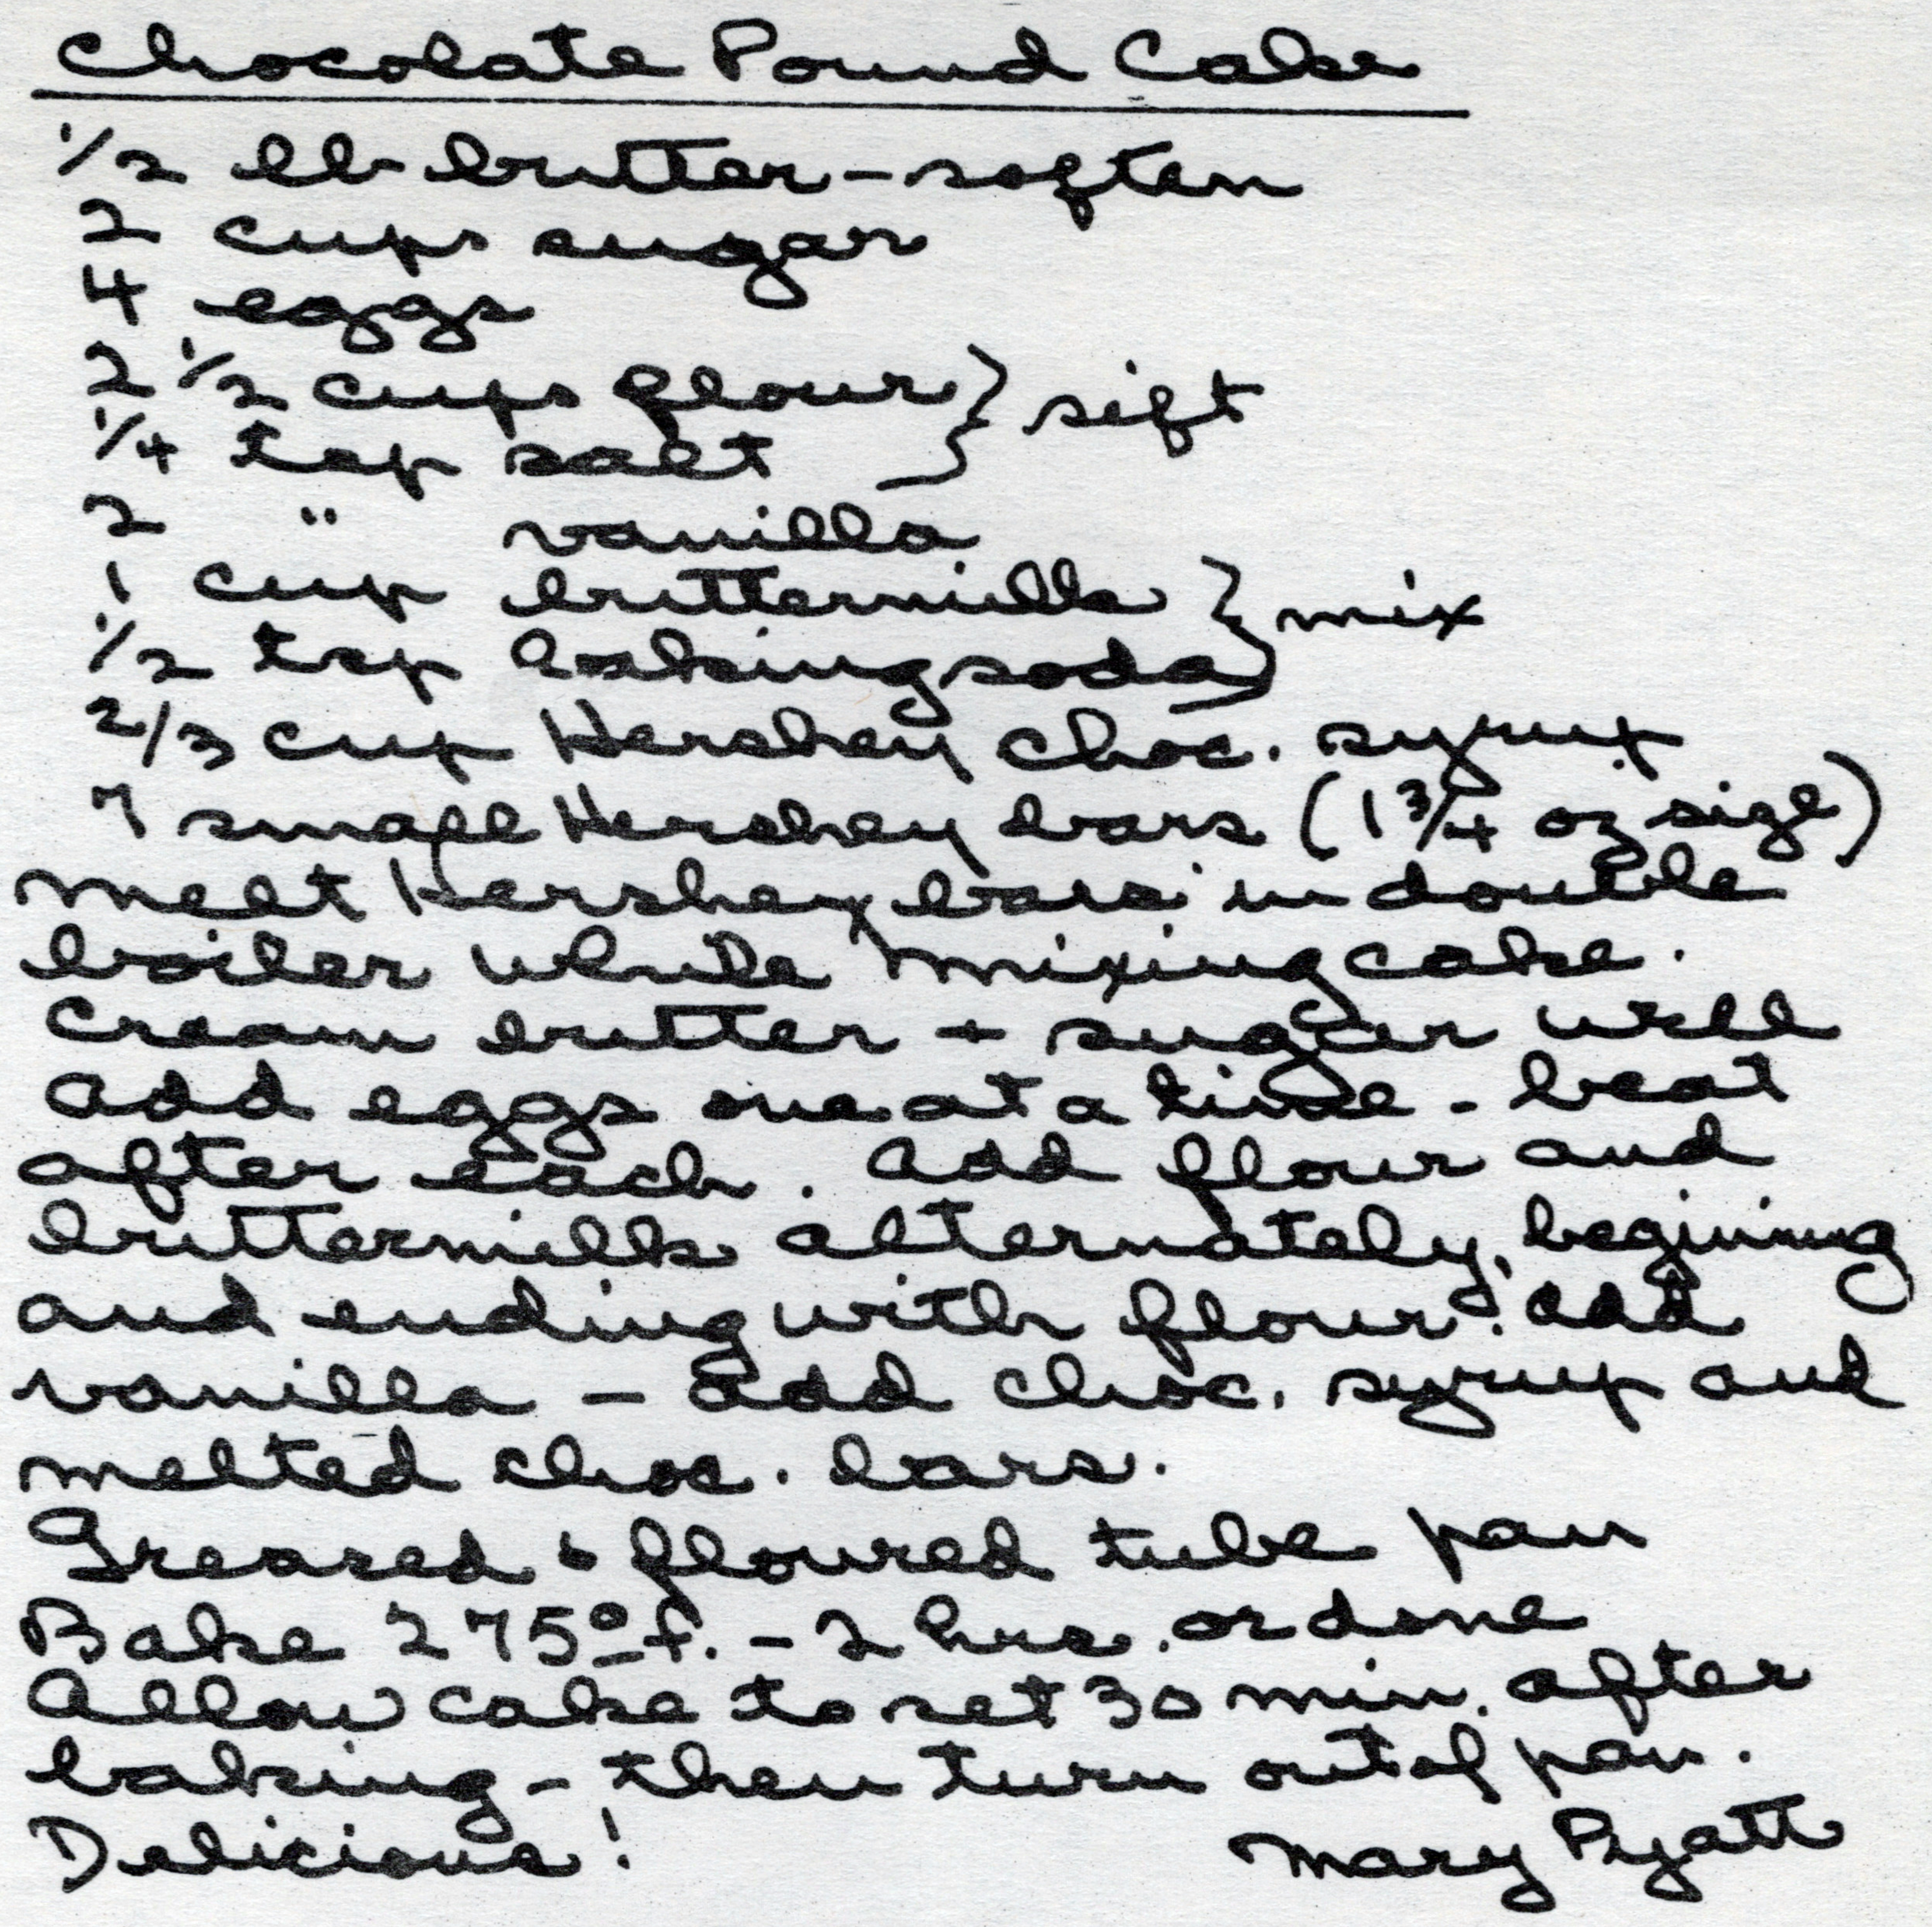 Chocolate Pound Cake
1/2 lb butter - soften
2 cups sugar
4 eggs
2 1/2 cups flour } sift
1/4 tsp salt }
2 " vanilla
1 cup buttermilk } mix
1/2 tsp baking soda }
2/3 cup Hershey choc. syrup
7 small Hershey bars (1 3/4 oz size)
Melt Hershey bars in double
boiler while mixing cake.
Cream butter + sugar well
add eggs one at a time - beat
after each. Add flour and
buttermilk alternately, begining
and ending with flour. Add
vanilla - add choc. syrup and
melted choc. bars.
Greased & floured tube pan
Bake 275° f. - 2 hrs. or done
Allow cake to set 30 min. after
baking - then turn out of pan.
Delicious! Mary Pyatt